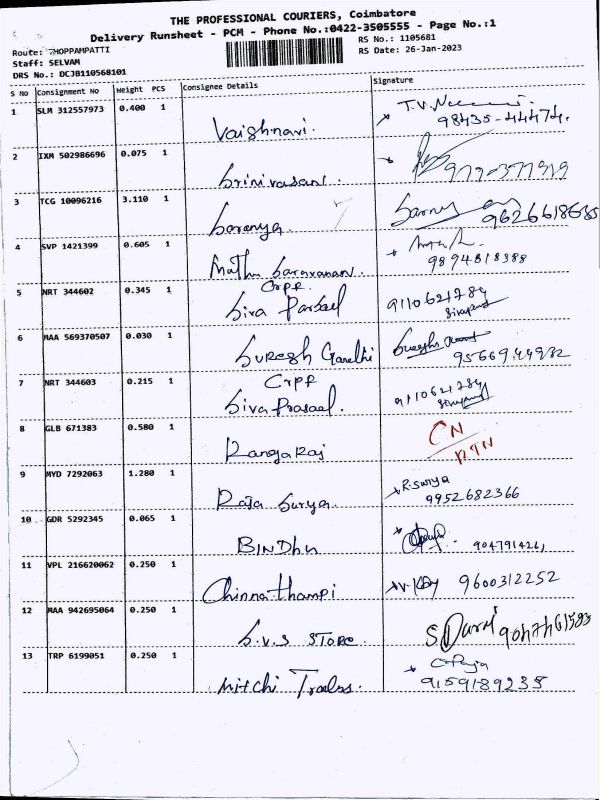 THE PROFESSIONAL COURIERS, Coimbatore
Delivery Runsheet - PCM - Phone No.:0422-3505555 - Page No.:1
Route: THOPPAMPATTI
RS No.: 1105681
Staff: SELVAM
RS Date: 26-Jan-2023
DRS No.: DCJB110568101
S No Consignment No Weight PCS Consignee Details Signature
1 SLM 312557973 0.400 1 Vaishnavi. 98435-44474.
2 IXM 502986696 0.075 1 Srinivasan.
3 TCG 10096216 3.110 1 Saranya.
4 SVP 1421399 0.605 1 Muthu Saravanan. 9894818388
5 NRT 344602 0.345 1 CRPF 9110621784
Siva Parsad
6 MAA 569370507 0.030 1 Suresh Gandhi
7 NRT 344603 0.215 1 CRPF 9110621784
Siva Prasad.
8 GLB 671383 0.580 1 Rangaraj CN
RTN
9 MYD 7292063 1.280 1 Raja Surya. R.Surya
9952682366
10 GDR 5292345 0.065 1 BINDHU
11 VPL 216620062 0.250 1 Chinnathampi 9600312252
12 MAA 942695064 0.250 1 S.V.S STORE.
13 TRP 6199051 0.250 1 9159189235